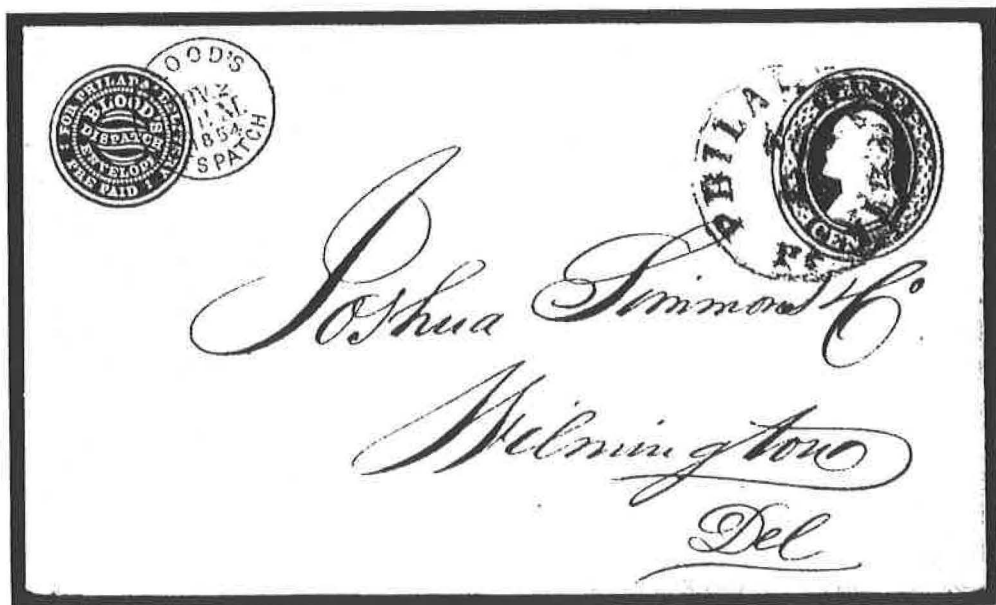 FOR PHILADA. DELIVERY
BLOOD'S
DISPATCH
ENVELOPE
PRE PAID
OOD'S
OV. 2
P.M.
1854
SPATCH
PHILA
THREE
CEN
Joshua Simmons & Co
Wilmington
Del